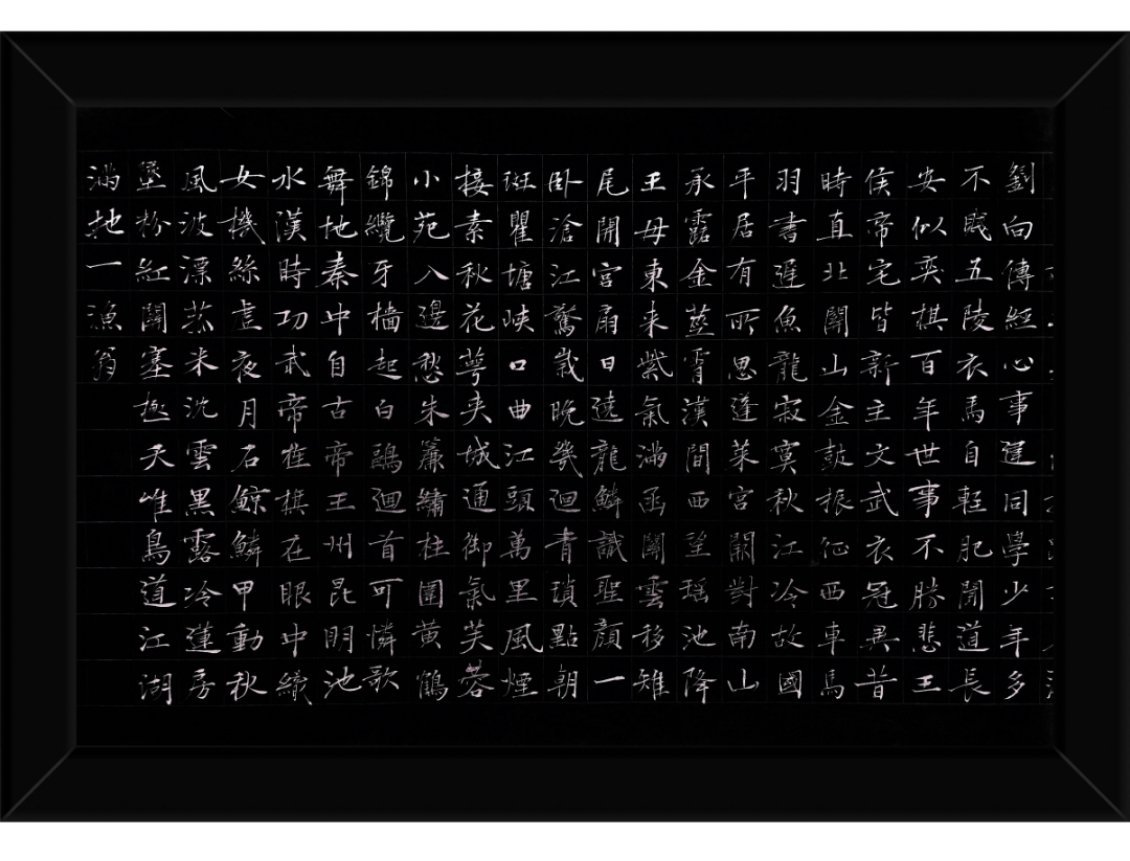 劉向傳經心事違同學少年多
不賤五陵衣馬自輕肥聞道長
安似奕棋百年世事不勝悲王
侯帝宅皆新主文武衣冠異昔
時直北關山金鼓振征西車馬
羽書遲魚龍寂寞秋江冷故國
平居有所思蓬萊宮闕對南山
承露金莖霄漢間西望瑤池降
王母東来紫氣滿函關雲移雉
尾開宮扇日遶龍鱗識聖顏一
臥滄江驚歲晚幾迴青瑣點朝
班瞿塘峽口曲江頭萬里風煙
接素秋花萼夾城通御氣芙蓉
小苑入邊愁朱簾繡柱圍黃鶴
錦纜牙檣起白鷗迴首可憐歌
舞地秦中自古帝王州昆明池
水漢時功武帝旌旗在眼中織
女機絲虛夜月石鯨鱗甲動秋
風波漂菰米沈雲黑露冷蓮房
墜粉紅關塞極天唯鳥道江湖
滿地一漁翁